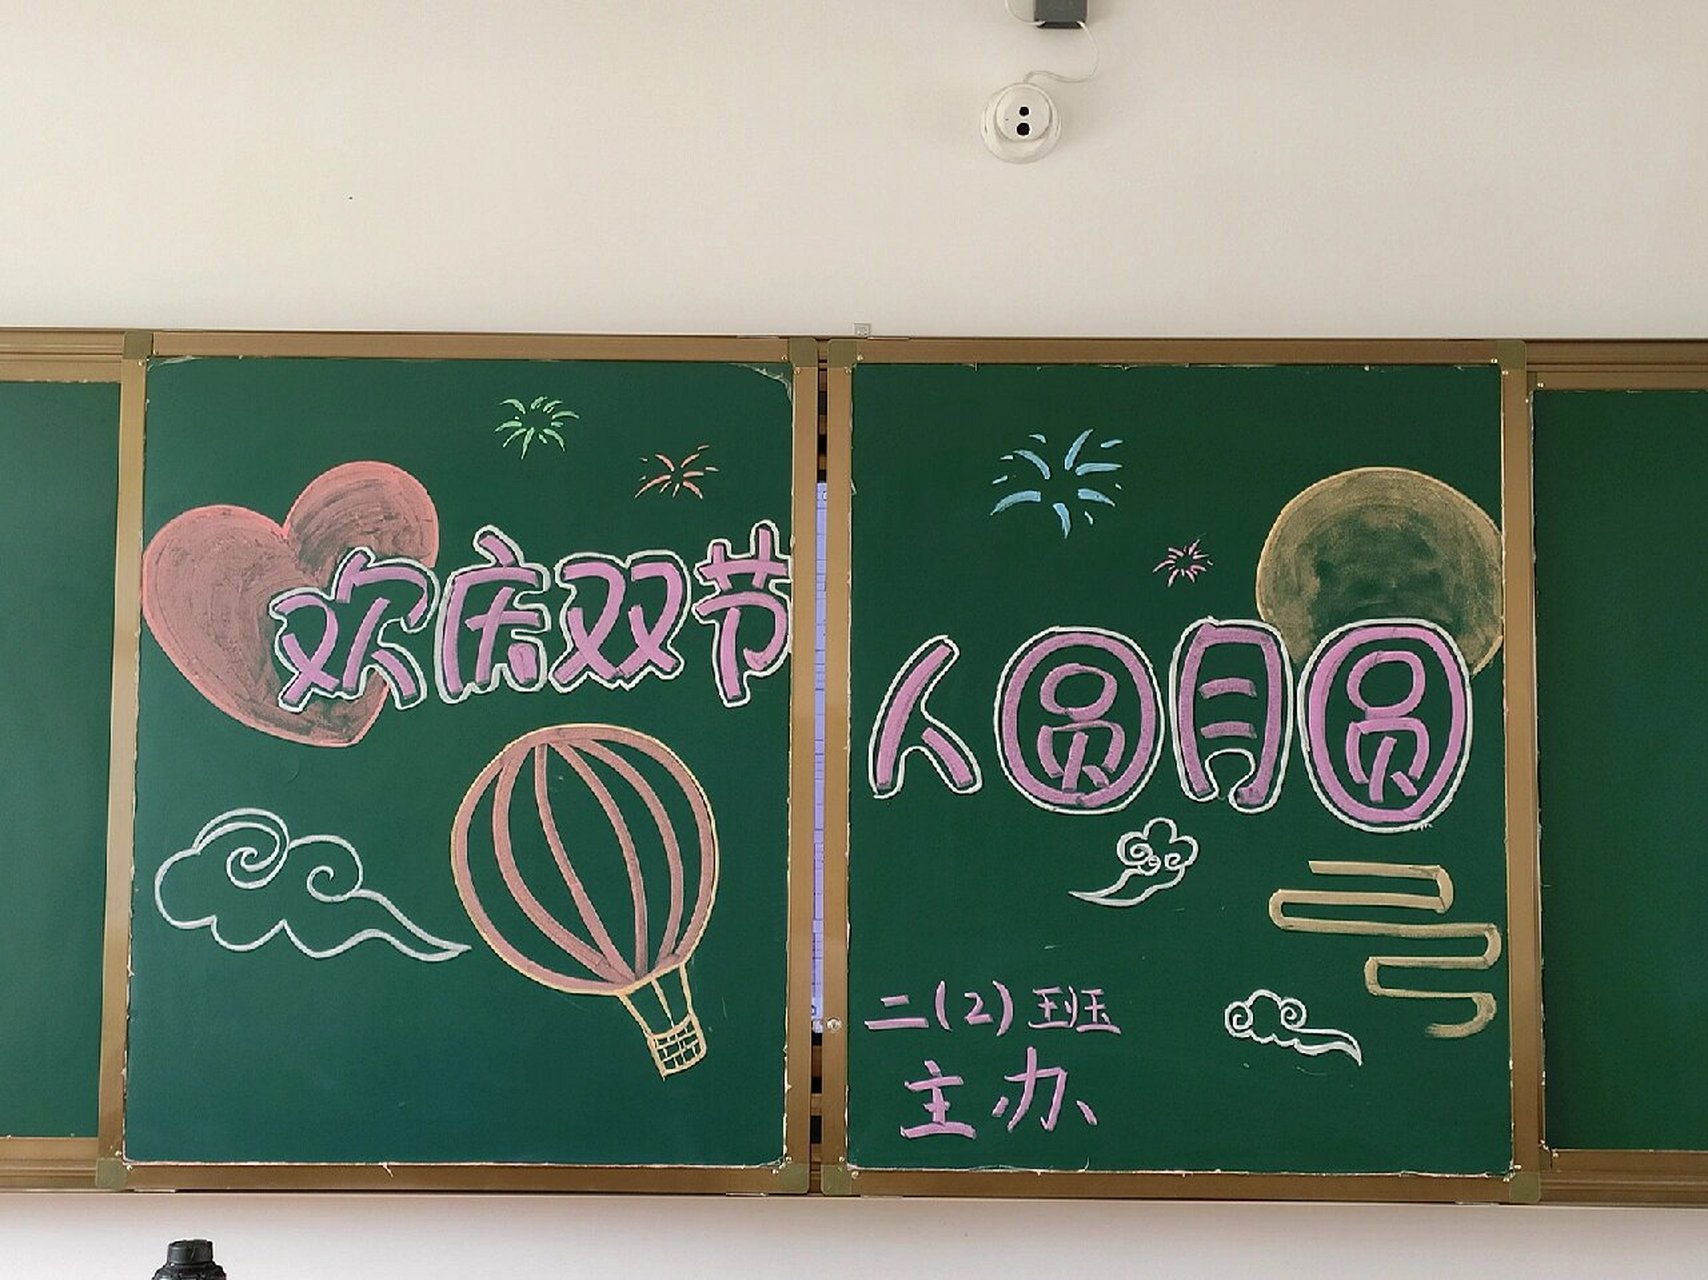 欢庆双节
人圆月圆
二(2)班
主办